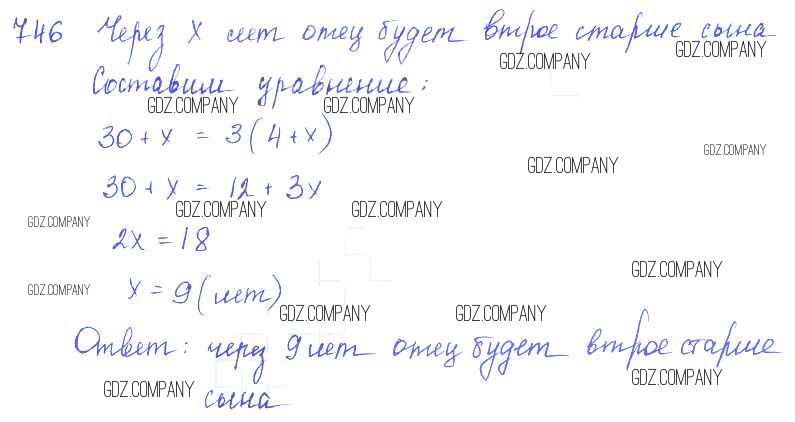 746 Через x лет отец будет втрое старше сына
GDZ.COMPANY GDZ.COMPANY
Составим уравнение:
GDZ.COMPANY GDZ.COMPANY
30 + x = 3(4 + x)
GDZ.COMPANY GDZ.COMPANY
30 + x = 12 + 3x
GDZ.COMPANY GDZ.COMPANY GDZ.COMPANY
2x = 18
GDZ.COMPANY GDZ.COMPANY
x = 9 (лет)
GDZ.COMPANY GDZ.COMPANY
Ответ: через 9 лет отец будет втрое старше
GDZ.COMPANY GDZ.COMPANY
сына